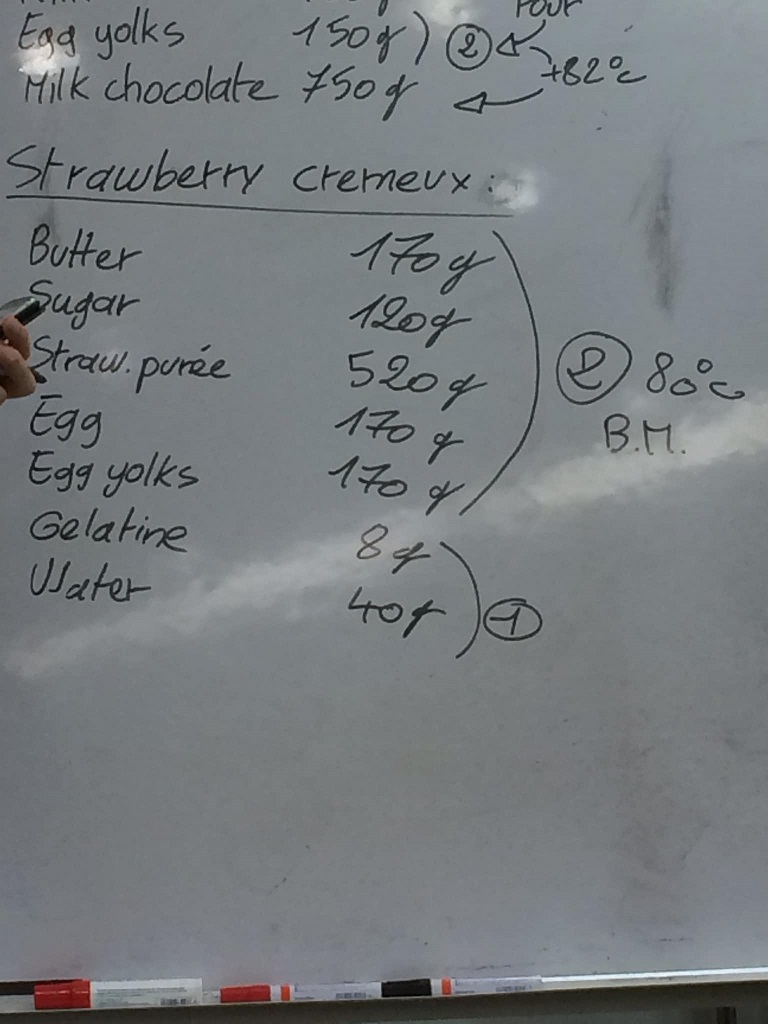 Pour
Egg yolks 150g ) ②
+82°c
Milk chocolate 750g
Strawberry cremeux :
Butter 170g
Sugar 120g
Straw. purée 520g
② 80°c
Egg 170g
B.M.
Egg yolks 170g
Gelatine 8g
Water 40g
①